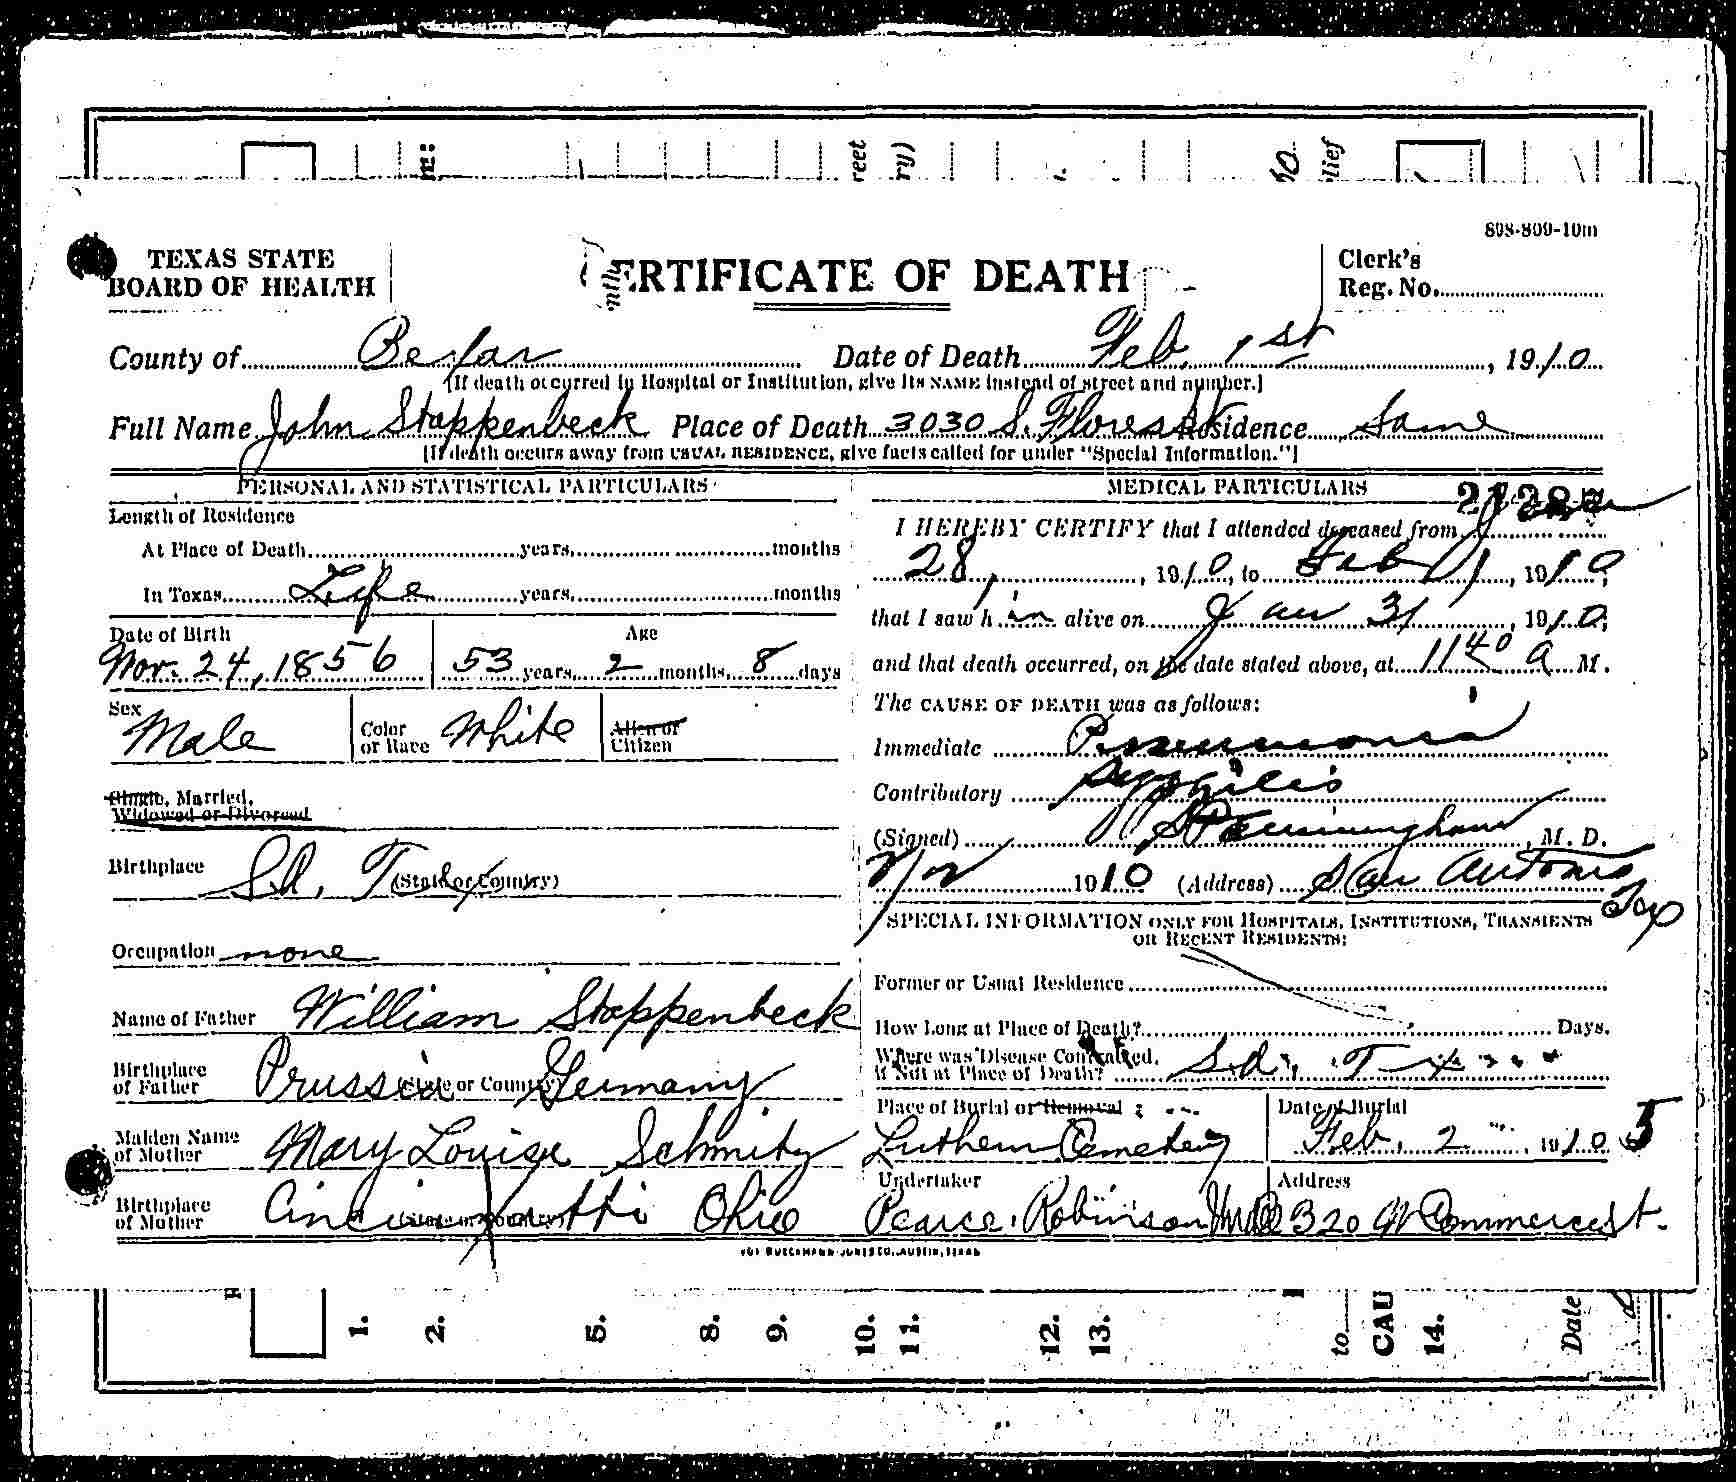 reet
ry)
lief
898-809-10m
TEXAS STATE
BOARD OF HEALTH
ERTIFICATE OF DEATH
Clerk's
Reg. No.
County of Bexar Date of Death Feb. 1st, 1910
[If death occurred in Hospital or Institution, give its NAME instead of street and number.]
Full Name John Stappenbeck Place of Death 3030 S. Flores St Residence Same
[If death occurs away from USUAL RESIDENCE, give facts called for under "Special Information."]
PERSONAL AND STATISTICAL PARTICULARS
Length of Residence
At Place of Death years, months
In Texas Life years, months
Date of Birth Age
Nov. 24, 1856 53 years, 2 months, 8 days
Sex Male Color or Race White Alien or Citizen
Single, Married,
Widowed or Divorced
Birthplace S.A. Tex (State or Country)
Occupation none
Name of Father William Stappenbeck
Birthplace of Father Prussia Germany (State or Country)
Maiden Name of Mother Mary Louise Schmitz
Birthplace of Mother Cincinnatti Ohio (State or Country)
MEDICAL PARTICULARS
I HEREBY CERTIFY that I attended deceased from Jan
28, 1910, to Feb 1, 1910,
that I saw him alive on Jan 31, 1910,
and that death occurred, on the date stated above, at 11 40 a M.
The CAUSE OF DEATH was as follows:
Immediate Pneumonia
Contributory Syphilis
(Signed) M. D.
1910 (Address) San Antonio Tex
SPECIAL INFORMATION ONLY FOR HOSPITALS, INSTITUTIONS, TRANSIENTS
OR RECENT RESIDENTS:
Former or Usual Residence
How Long at Place of Death? Days.
Where was Disease Contracted,
if Not at Place of Death? S.A. Tx
Place of Burial or Removal Date of Burial
Luthern Cemetery Feb. 2 1910 5
Undertaker Address
Pearce, Robinson 320 W Commerce St.
1.
2.
5.
8.
9.
10.
11.
12.
13.
to
CAU
14.
Date